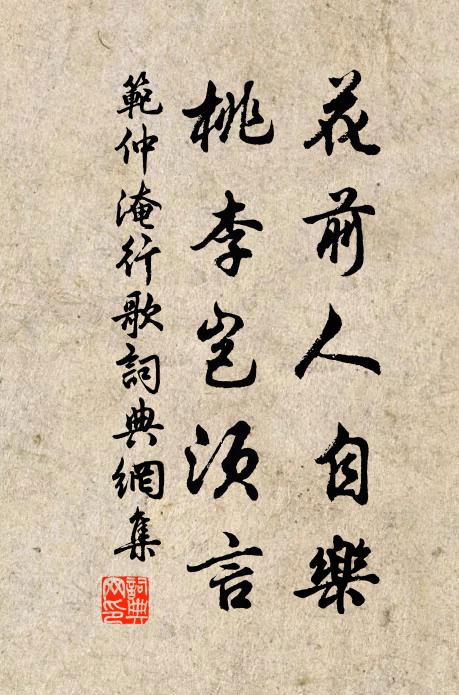 花前人自樂
桃李豈須言
範仲淹行歌詞典網集
詞典網印